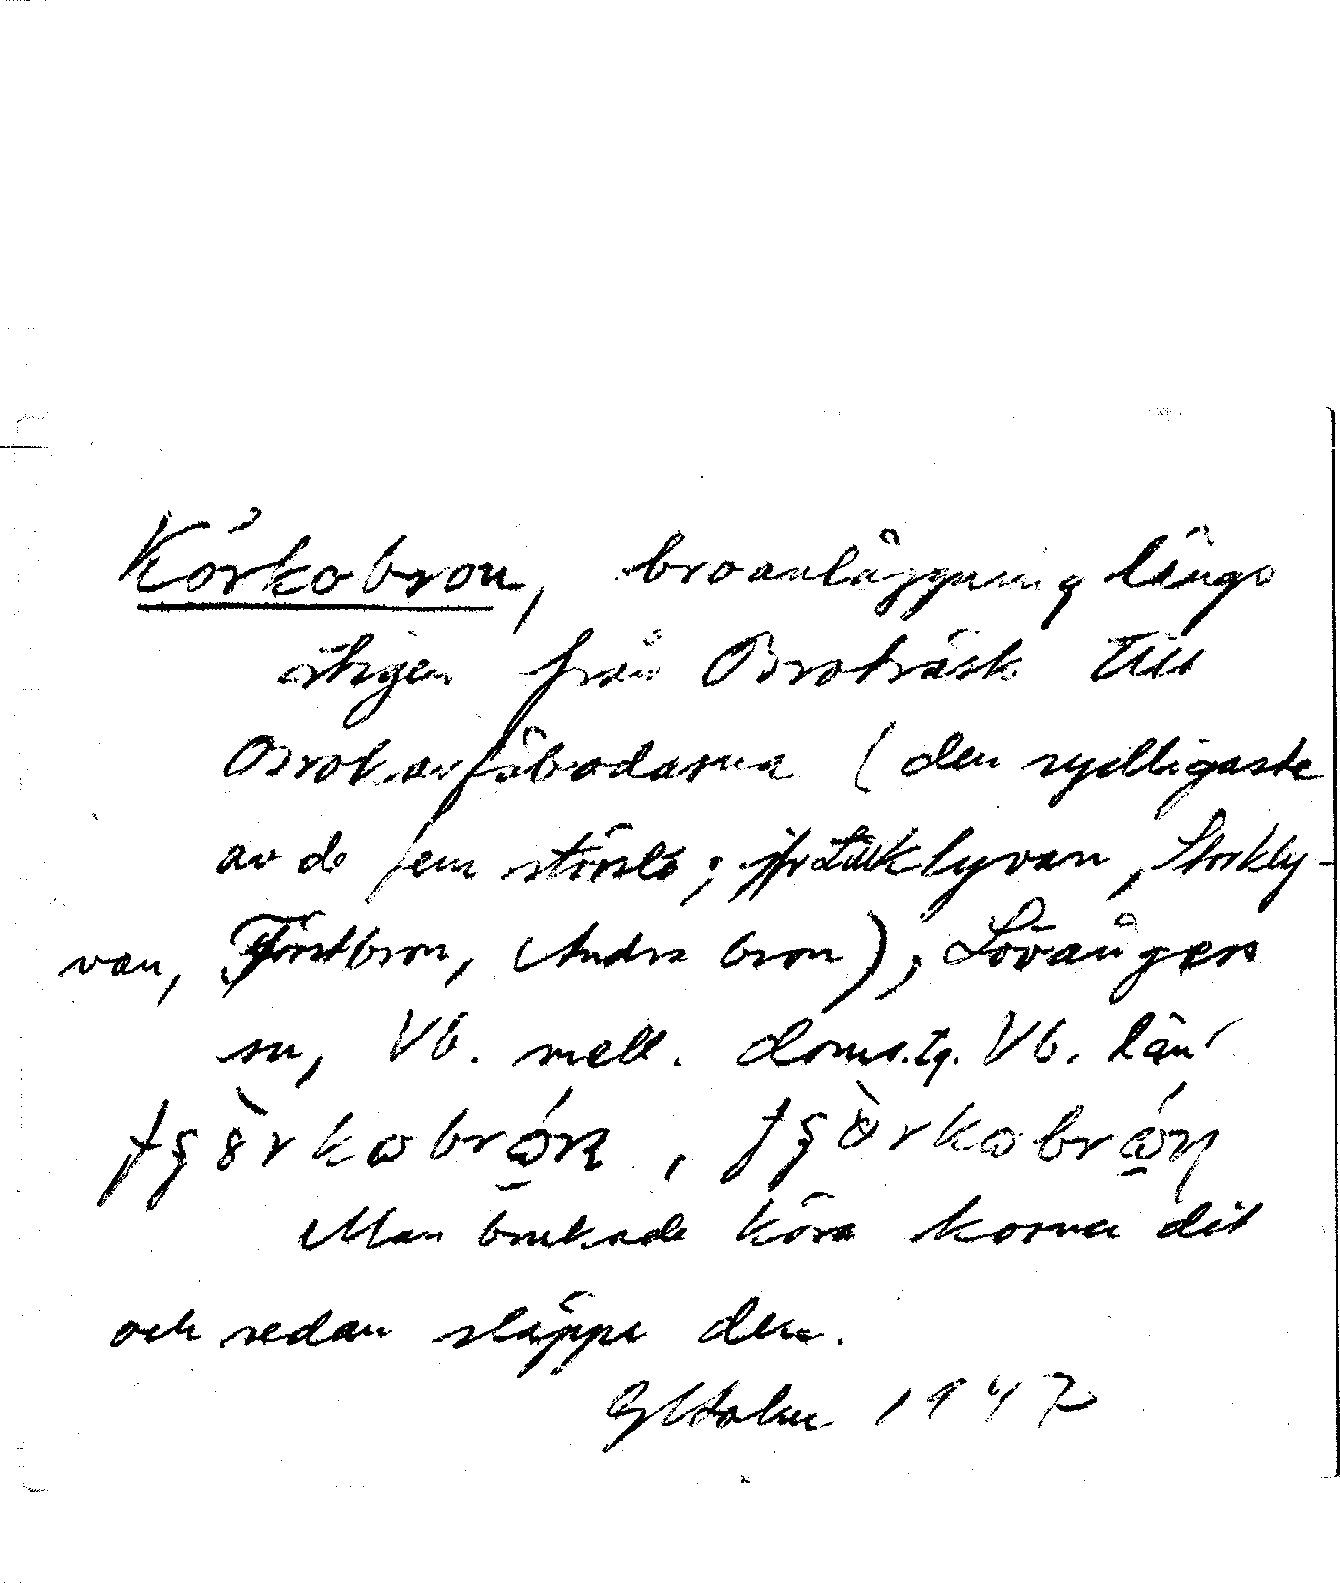 Körkobron, broanläggning längs
stigen från Broträsk till
fäbodarna (den sydligaste
av de fem största; jfr Lillklyvan, Storkly-
van, Förstbron, Andra bron), Lövångers
sn, Vb. mell. doms.tg. Vb. län
Man brukade köra korna dit
och sedan släppa dem.
Holm 1947